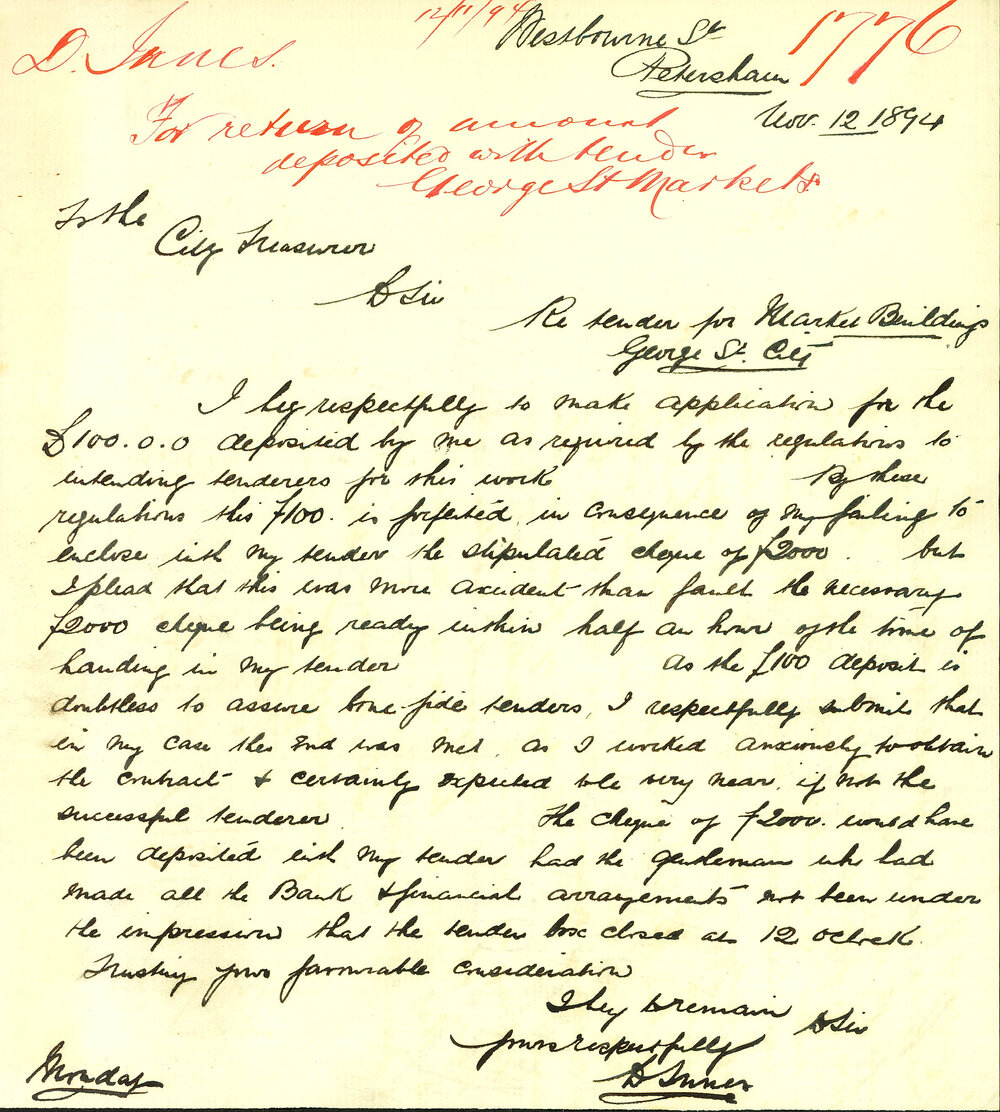 12/11/94
D. Innes.
1776
Westbourne St
Petersham
Nov. 12 1894
For return of amount
deposited with tender
George St Markets
To the
City Treasurer
D Sir
Re tender for Market Buildings
George St. City
I beg respectfully to make application for the
£100.0.0 deposited by me as required by the regulations to
intending tenderers for this work By these
regulations this £100. is forfeited in consequence of my failing to
enclose with my tender the stipulated cheque of £2000. but
I plead that this was more accident than fault the necessary
£2000 cheque being ready within half an hour of the time of
handing in my tender as the £100 deposit is
doubtless to assure bona-fide tenders, I respectfully submit that
in my case this end was met, as I worked anxiously to obtain
the contract & certainly expected to be very near, if not the
successful tenderer The cheque of £2000. would have
been deposited with my tender had the gentleman who had
made all the Bank & financial arrangements not been under
the impression that the tender box closed at 12 oclock.
Trusting your favourable consideration
I beg to remain
D Sir
yours respectfully
D Innes
Monday